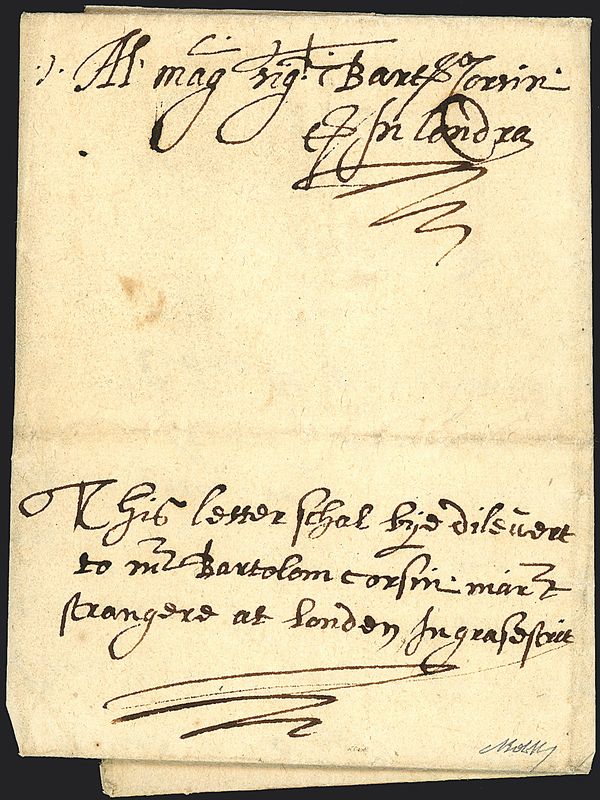 Al mag sig Bart Corsin
In londra
This letter schal bye dilevert
to mr Bartolom Corsin mart
strangere at londen In grasestrit